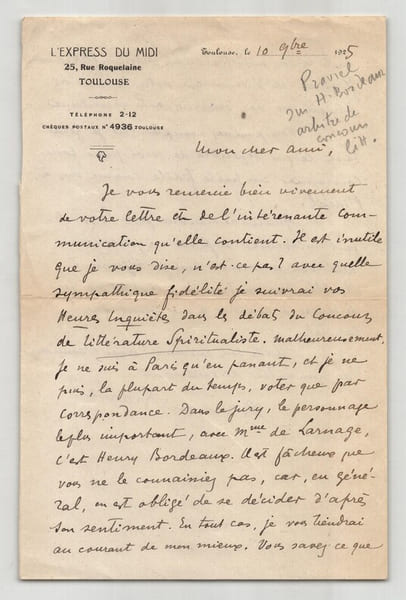 L'EXPRESS DU MIDI
25, Rue Roquelaine
TOULOUSE
TÉLÉPHONE 2-12
CHÈQUES POSTAUX Nº 4936 TOULOUSE
Toulouse, le 10 9bre 1925
Praviel
sur H. Bordeaux
arbitre de
concours
litt.
Mon cher ami,
Je vous remercie bien vivement
de votre lettre et de l'intéressante com-
munication qu'elle contient. Il est inutile
que je vous dise, n'est-ce pas? avec quelle
sympathique fidélité je suivrai vos
Heures Inquiètes dans les débats du Concours
de littérature Spiritualiste. Malheureusement,
je ne suis à Paris qu'en passant, et je ne
puis, la plupart du temps, voter que par
correspondance. Dans le jury, le personnage
le plus important, avec Mme de Larnage,
c'est Henry Bordeaux. Il est fâcheux que
vous ne le connaissiez pas, car, en géné-
ral, on est obligé de se décider d'après
son sentiment. En tout cas, je vous tiendrai
au courant de mon mieux. Vous savez ce que